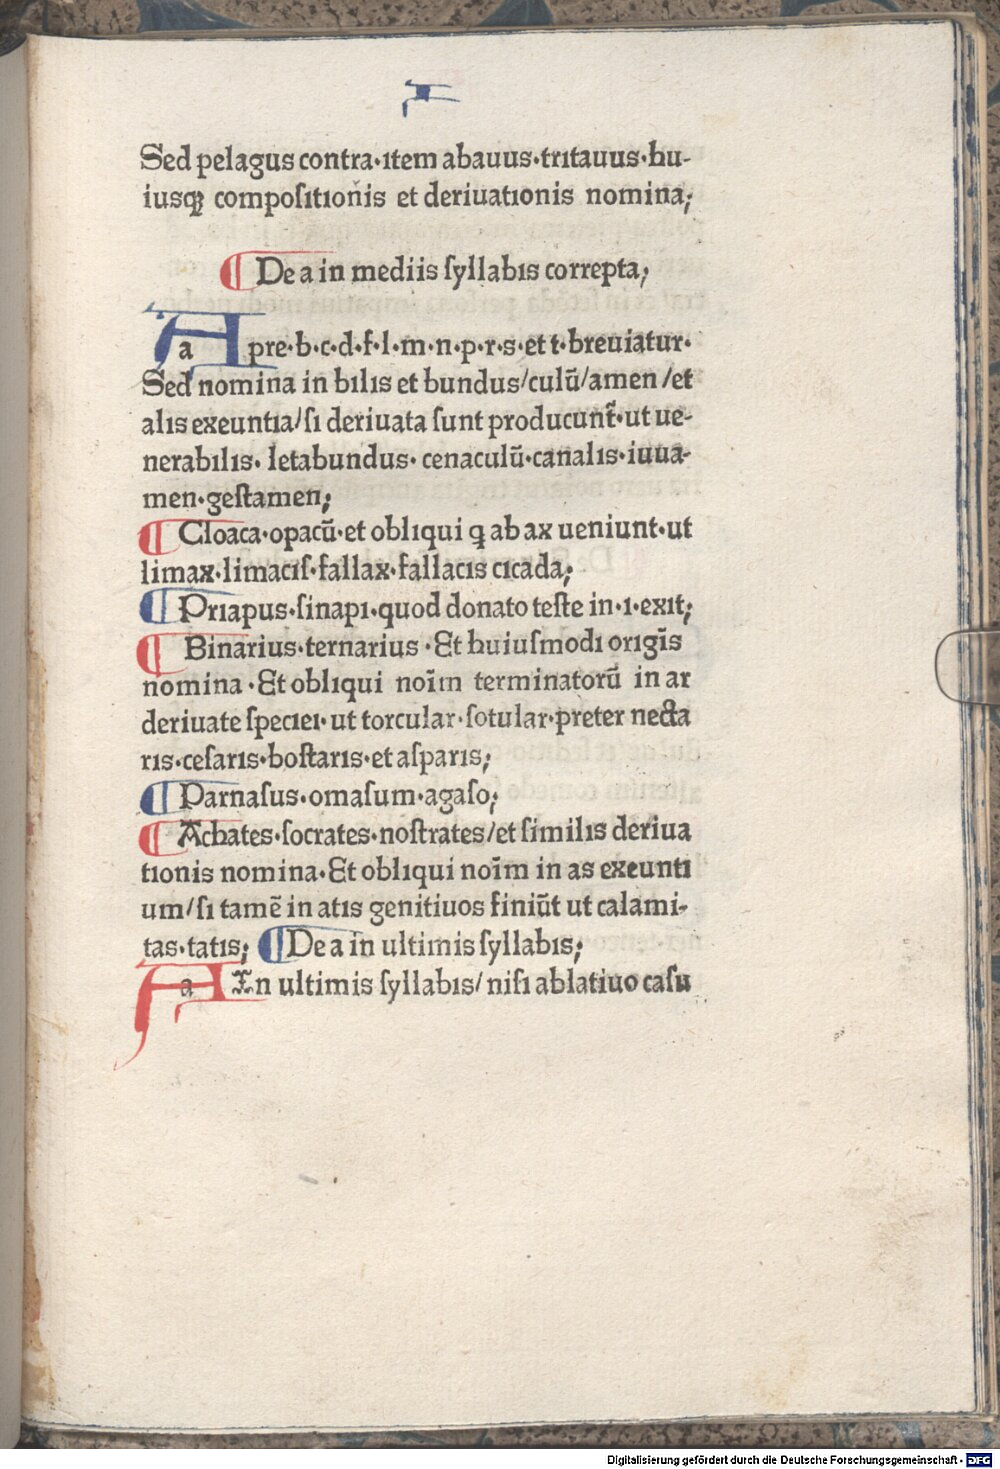 Sed pelagus contra·item abauus·tritauus·hu-
iusqꝫ compoſitionis et deriuationis nomina;
De a in mediis ſyllabis correpta;
A a pre·b·c·d·f·l·m·n·p·r·s·et t·breuiatur·
Sed nomina in bilis et bundus/culũ/amen/et
alis exeuntia/ſi deriuata ſunt producunt̃·ut ue-
nerabilis·letabundus·cenaculũ·canalis·iuua-
men·geſtamen;
Cloaca·opacũ·et obliqui ꝗ ab ax ueniunt·ut
limax·limaciſ·fallax·fallacis cicada;
Priapus·ſinapi·quod donato teſte in·i·exit;
Binarius·ternarius·Et huiuſmodi origĩs
nomina·Et obliqui noĩm terminatorũ in ar
deriuate ſpeciei·ut torcular·ſotular·preter necta
ris·ceſaris·boſtaris·et aſparis;
Parnaſus·omaſum·agaſo;
Achates·ſocrates·noſtrates/et ſimilis deriua
tionis nomina·Et obliqui noĩm in as exeunti
um/ſi tamẽ in atis genitiuos finiũt ut calami-
tas·tatis; De a in ultimis ſyllabis;
A a In ultimis ſyllabis/niſi ablatiuo caſu
Digitalisierung gefördert durch die Deutsche Forschungsgemeinschaft - DFG